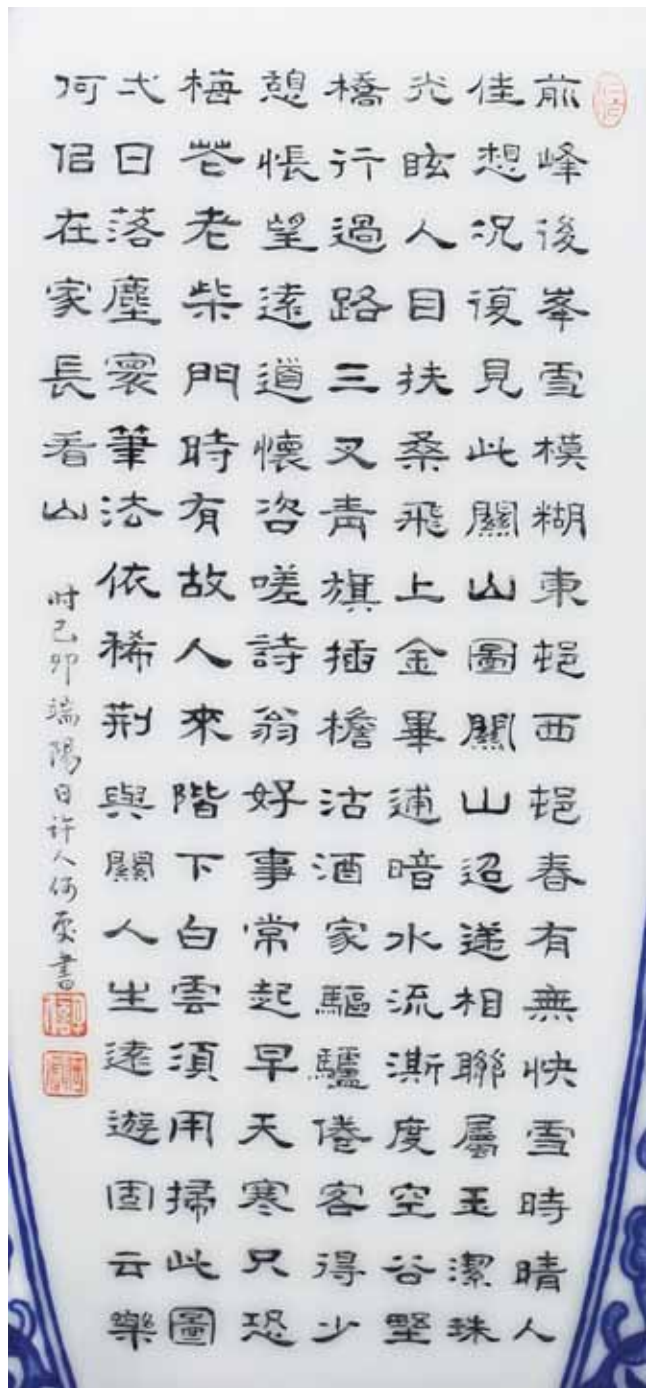 前峰後峯雪模糊東邨西邨春有無快雪時晴人
佳想況復見此關山圖關山迢遞相聯屬玉潔珠
光眩人目扶桑飛上金畢逋暗水流澌度空谷墅
橋行過路三叉青旗插檐沽酒家驅驢倦客得少
憩悵望遠道懷咨嗟詩翁好事常起早天寒只恐
梅花老柴門時有故人來階下白雲須用掃此圖
弌日落塵寰筆法依稀荆與關人生遠遊固云樂
何佀在家長看山
时己卯端陽日許人何處書